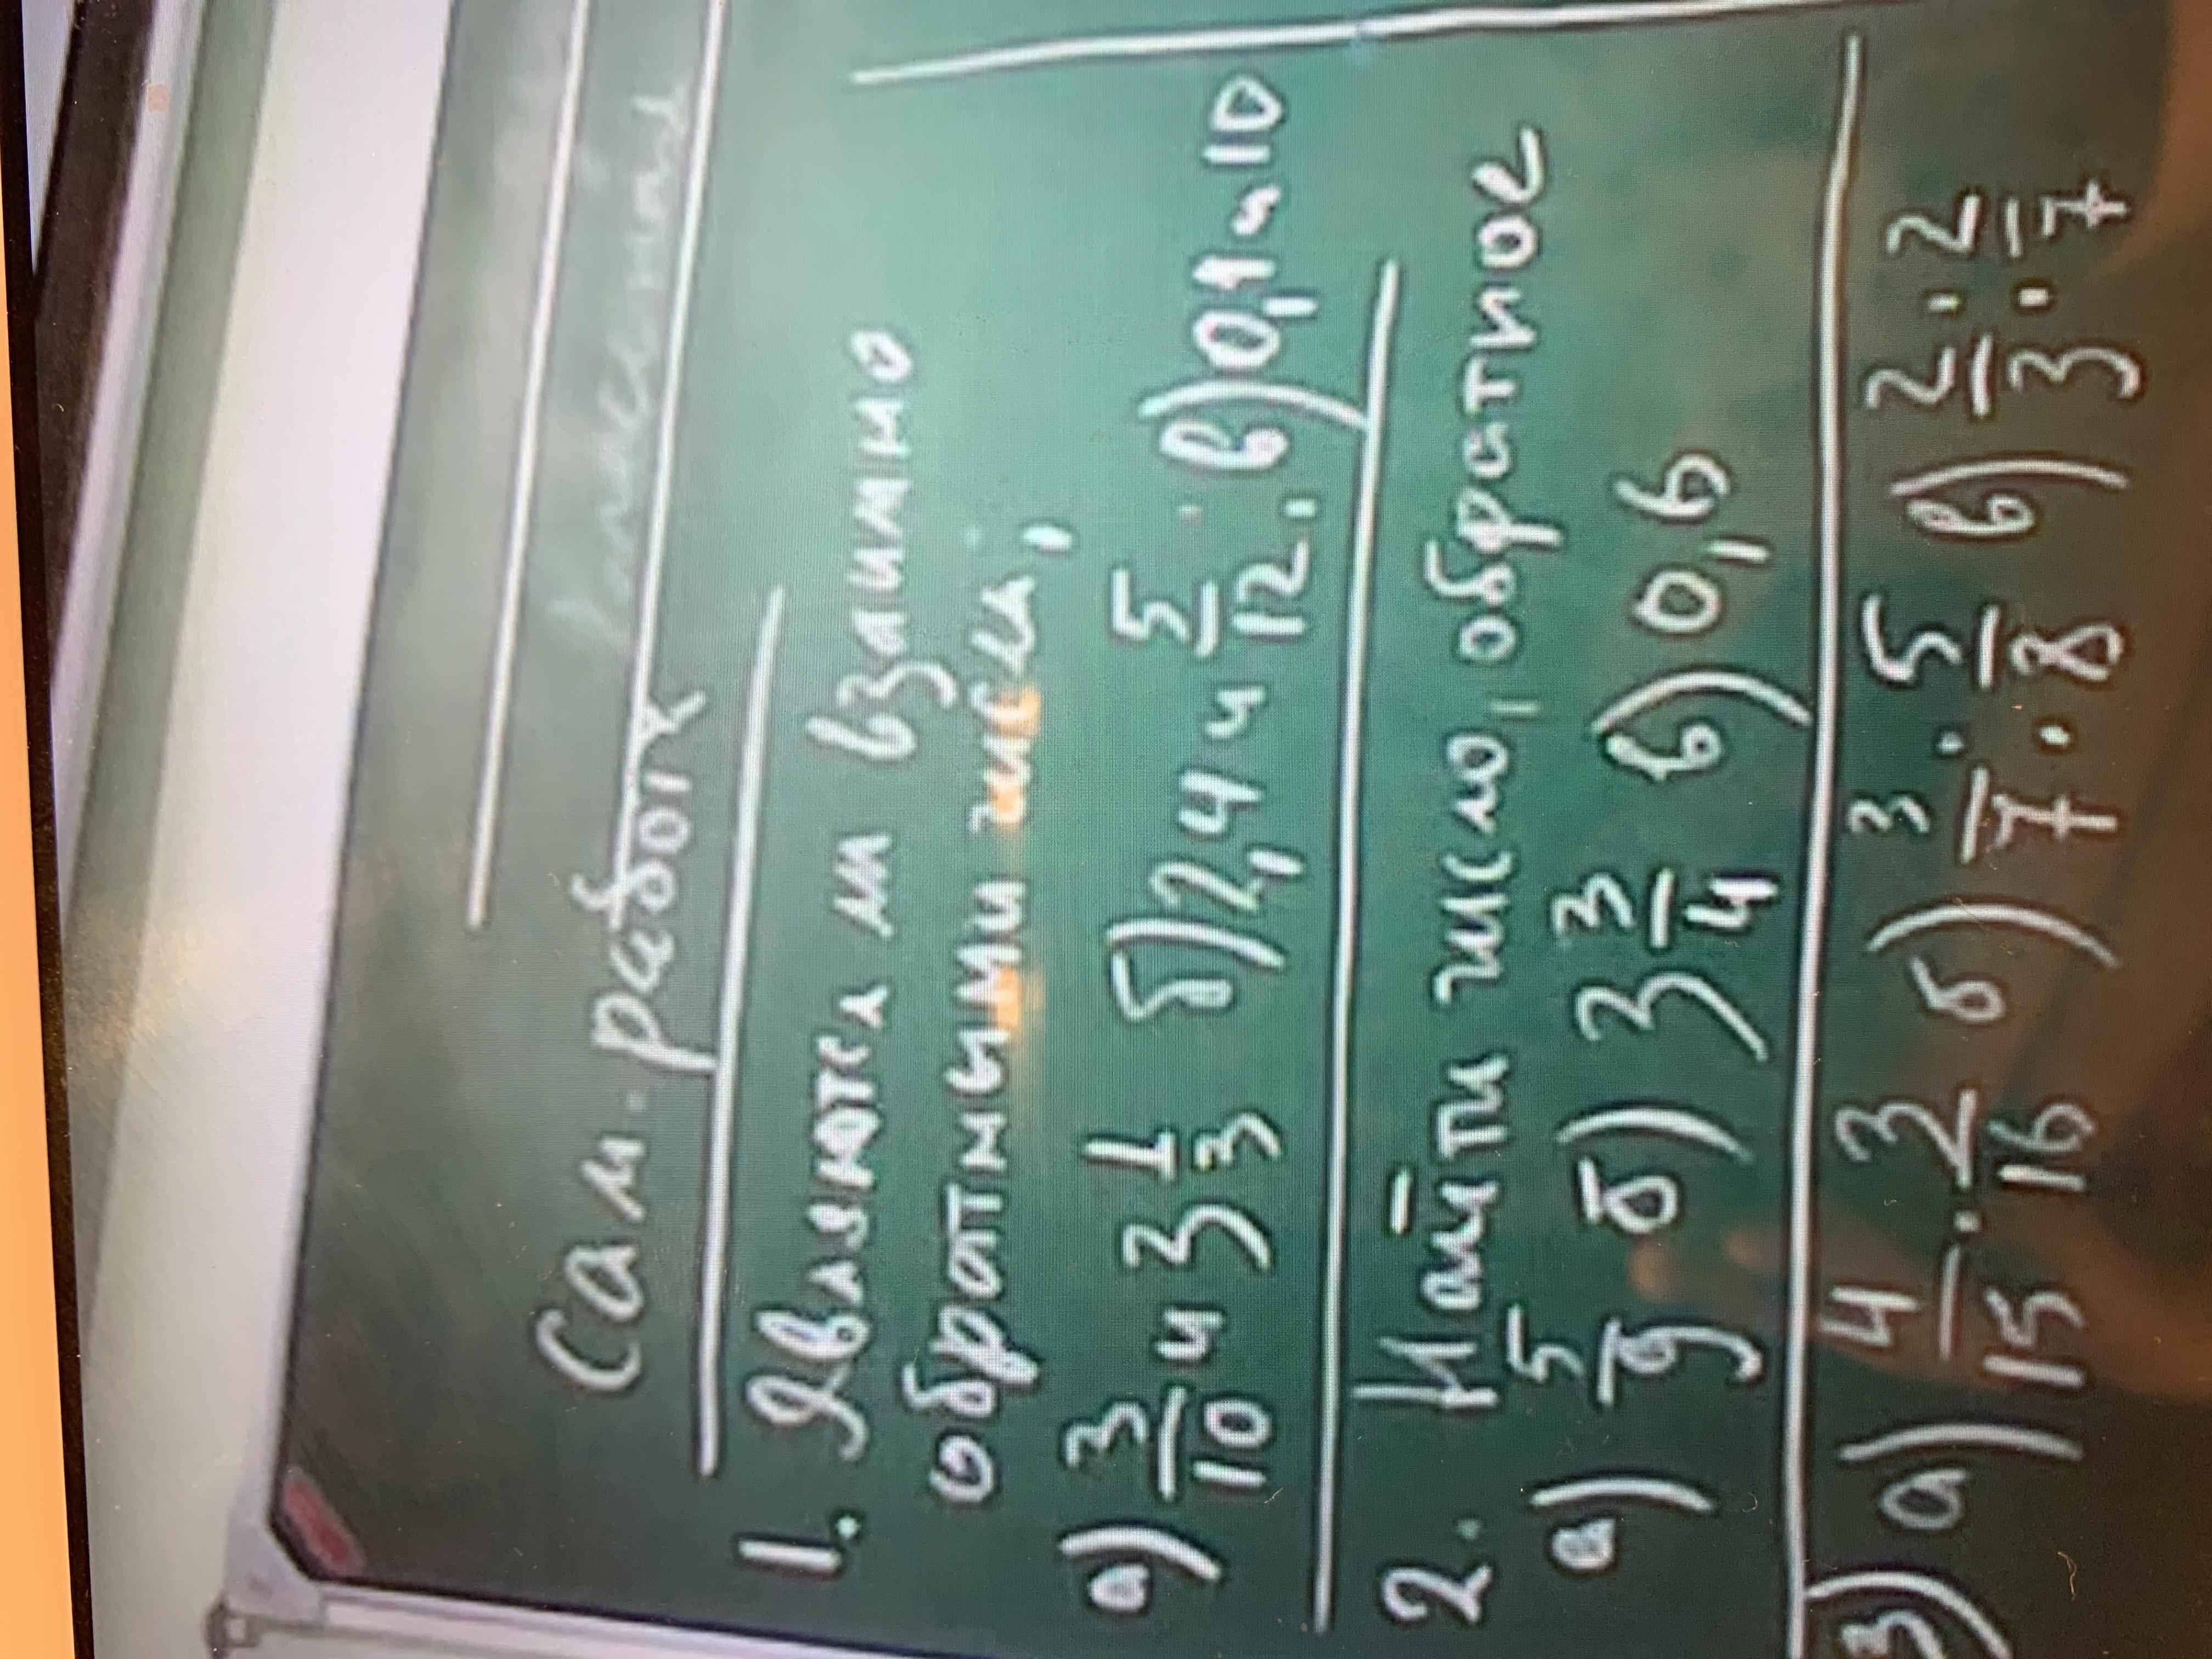 Сам. работа
1. Являются ли взаимно
обратными числа,
а) 3/10 и 3 1/3 б) 2,4 и 5/12. в) 0,1 и 10
2. Найти число, обратное
а) 5/9 б) 3 3/4 в) 0,6
3) а) 4/15 · 3/16 б) 3/7 : 5/8 в) 2/3 : 2/7